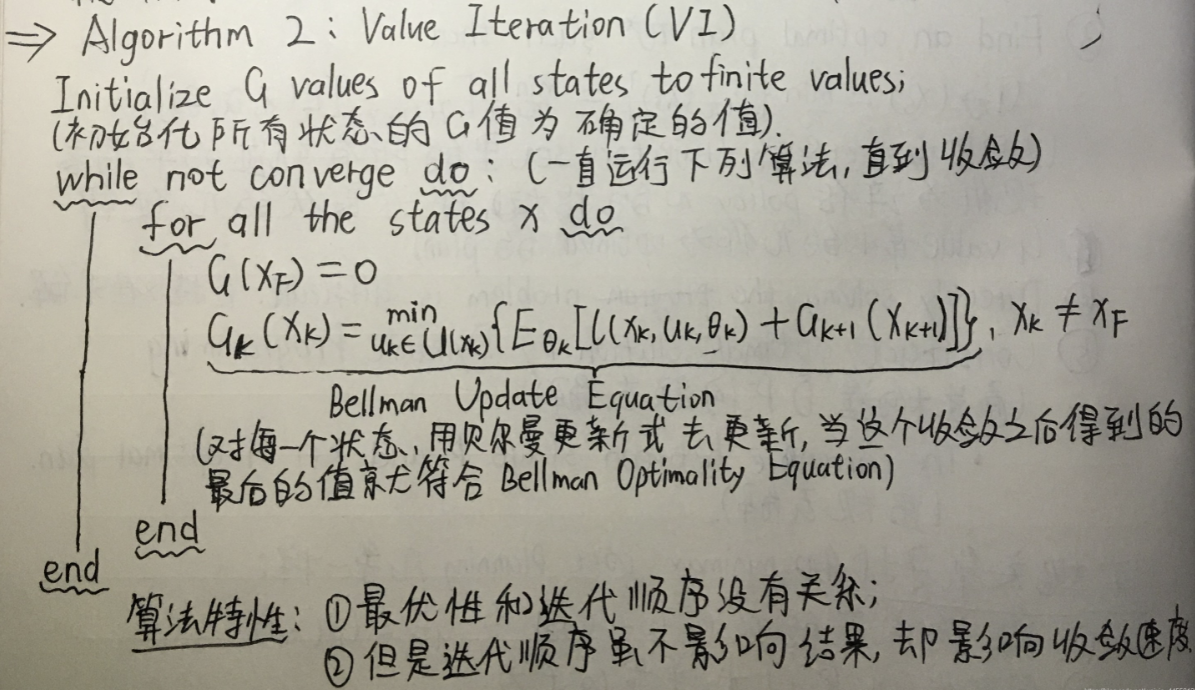 ⇒ Algorithm 2: Value Iteration (VI)
Initialize G values of all states to finite values;
(初始化所有状态的G值为确定的值).
while not converge do: (一直运行下列算法,直到收敛)
for all the states x do
G(x_F) = 0
G_k(x_k) = min_{u_k∈U(x_k)} {E_{θ_k}[l(x_k, u_k, θ_k) + G_{k+1}(x_{k+1})]}, x_k ≠ x_F
Bellman Update Equation
(对每一个状态,用贝尔曼更新式去更新,当这个收敛之后得到的
最后的值就符合 Bellman Optimality Equation)
end
end
算法特性: ① 最优性和迭代顺序没有关系;
② 但是迭代顺序虽不影响结果,却影响收敛速度